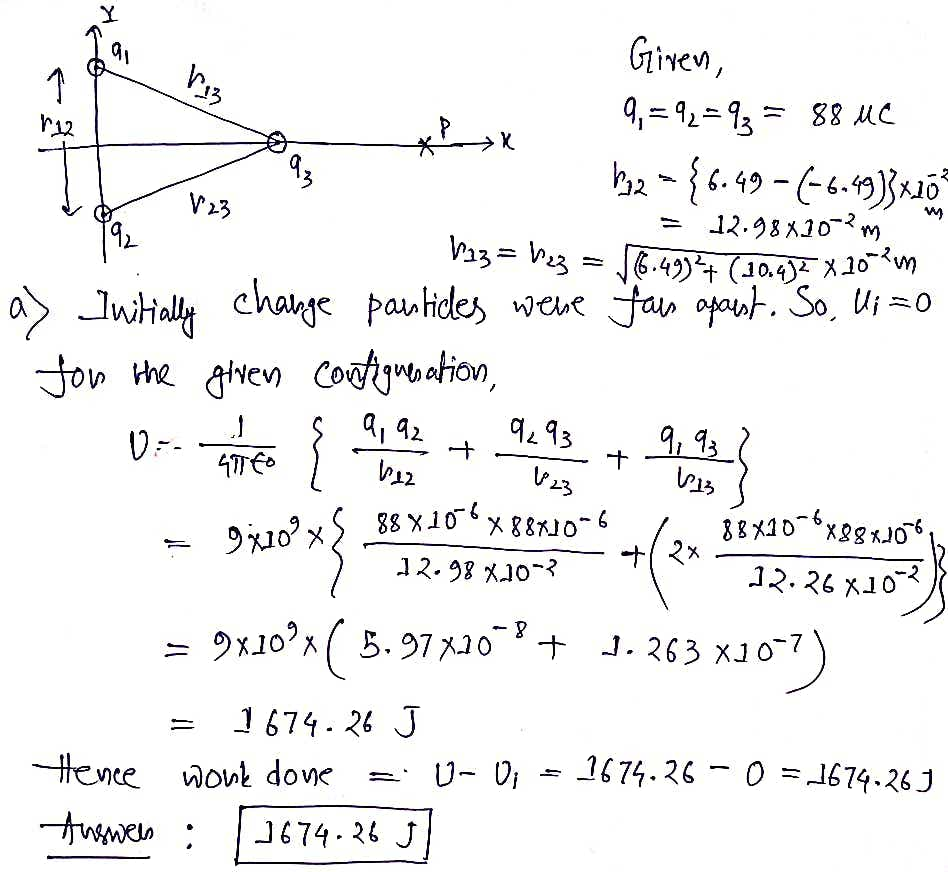 Y
q₁
r₁₃
r₁₂
P
X
q₃
r₂₃
q₂
Given,
q₁ = q₂ = q₃ = 88 μC
r₁₂ = {6.49 - (-6.49)}×10⁻² m
= 12.98×10⁻² m
r₁₃ = r₂₃ = √(6.49)² + (10.4)² × 10⁻² m
a) Initially charge particles were far apart. So, Ui = 0
for the given configuration,
U = 1/4π€₀ { q₁q₂/r₁₂ + q₂q₃/r₂₃ + q₁q₃/r₁₃ }
= 9×10⁹ × { 88×10⁻⁶ × 88×10⁻⁶/12.98×10⁻² + (2× 88×10⁻⁶×88×10⁻⁶/12.26×10⁻²) }
= 9×10⁹ × ( 5.97×10⁻⁸ + 1.263×10⁻⁷ )
= 1674.26 J
Hence work done = U - Ui = 1674.26 - 0 = 1674.26 J
Answer : 1674.26 J